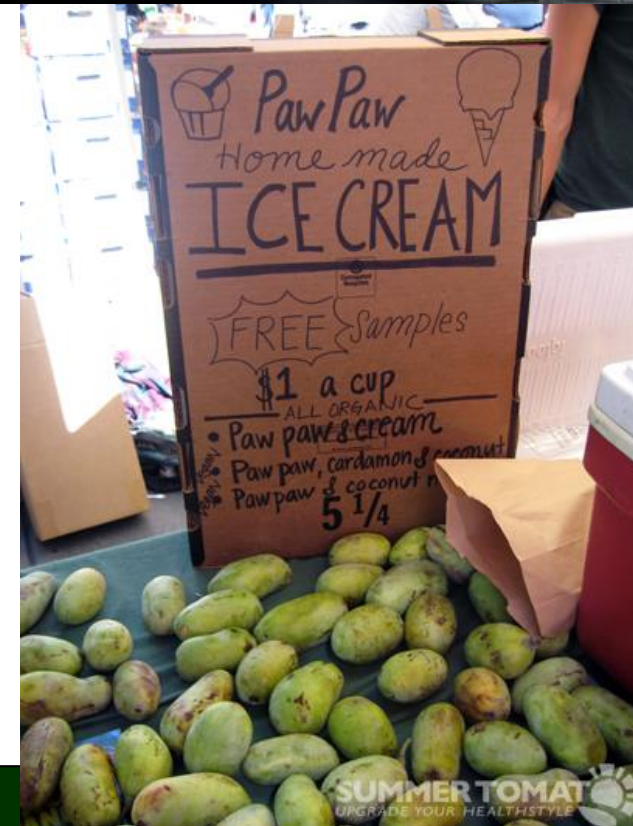 Paw Paw
Home made
ICE CREAM
FREE Samples
$1 a cup
ALL ORGANIC
• Paw paw & cream
• Paw paw, cardamon & coconut
• Paw paw & coconut
5 1/4
SUMMER TOMATO
UPGRADE YOUR HEALTHSTYLE